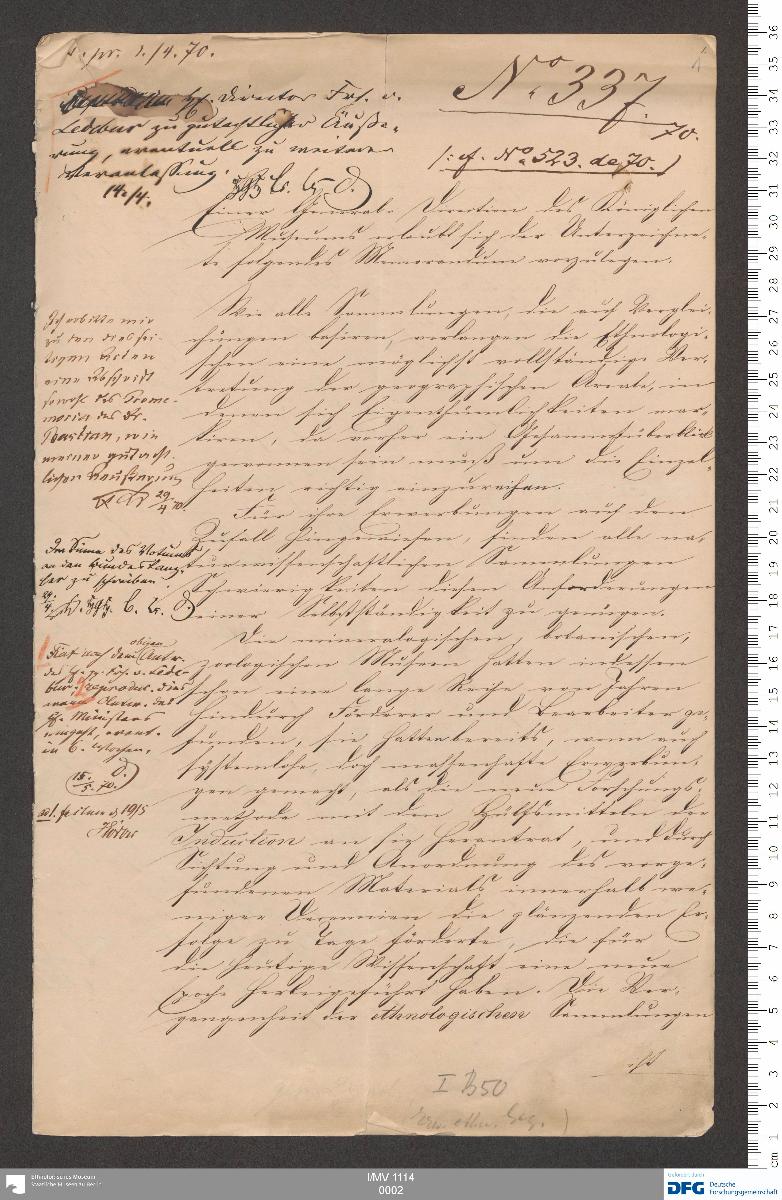 pr. 1./4. 70.
1
No 337.
70.
(: cf. No 523. de 70.)
H. Director Frh. v.
Ledebur zu gutachtlicher Äuße-
rung, eventuell zu weiterer
Veranlassung.
14./4.
Einer General-Direction des Königlichen
Museums erlaubt sich der Unterzeichne-
te folgendes Memorandum vorzulegen.
Wie alle Sammlungen, die auf Verglei-
chungen basiren, verlangen die Ethnologi-
schen eine möglichst vollständige Ver-
tretung der geographischen Areale, in
denen sich Eigenthümlichkeiten mar-
kiren, da vorher ein Gesammtüberblick
gewonnen sein muß um die Einzel-
heiten richtig einzureihen.
Für ihre Erwerbungen auf den
Zufall hingewiesen, finden alle na-
turwissenschaftlichen Sammlungen
Schwierigkeiten diesen Anforderungen
einer Selbstständigkeit zu genügen.
Die mineralogischen, botanischen,
zoologischen Museen hatten indessen
schon eine lange Reihe von Jahren
hindurch Förderer und Bearbeiter ge-
funden, sie hatten bereits, wenn auch
systemlose, doch massenhafte Erwerbun-
gen gemacht, als die neue Forschungs-
methode mit den Hülfsmitteln der
Induction an sie herantrat, und durch
Sichtung und Anordnung des vorge-
fundenen Materials innerhalb we-
niger Decennien die glänzenden Er-
folge zu Tage förderte, die für
die heutige Wissenschaft eine neue
Epoche herbeigeführt haben. Die Ver-
gangenheit der ethnologischen Sammlungen
ist
Ich erbitte mir
zu den diessei-
tigen Akten
eine Abschrift
sowohl des Prome-
moria des Dr.
Bastian, wie
meiner gutacht-
lichen Aeußerung
29/4 70.
Im Sinne des Votums
an den Bundeskanz-
ler zu schreiben
Fiat nach dem obigen Antr.
des H. p. Frh. v. Lede-
bur.
15./5. 70.
19/5
I B50
I/MV 1114
0002
Ethnologisches Museum
Staatliche Museen zu Berlin
Gefördert durch
DFG Deutsche
Forschungsgemeinschaft
cm 1 2 3 4 5 6 7 8 9 10 11 12 13 14 15 16 17 18 19 20 21 22 23 24 25 26 27 28 29 30 31 32 33 34 35 36